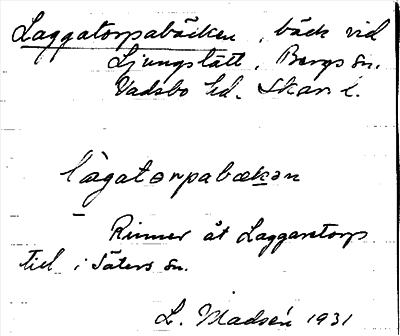 Laggatorpabäcken, bäck vid
Ljungslätt, Bergs sn.
Vadsbo hd. Skar. l.
lagatorpabækən
Rinner åt Laggaretorp
till i Säters sn.
L. Madsén 1931